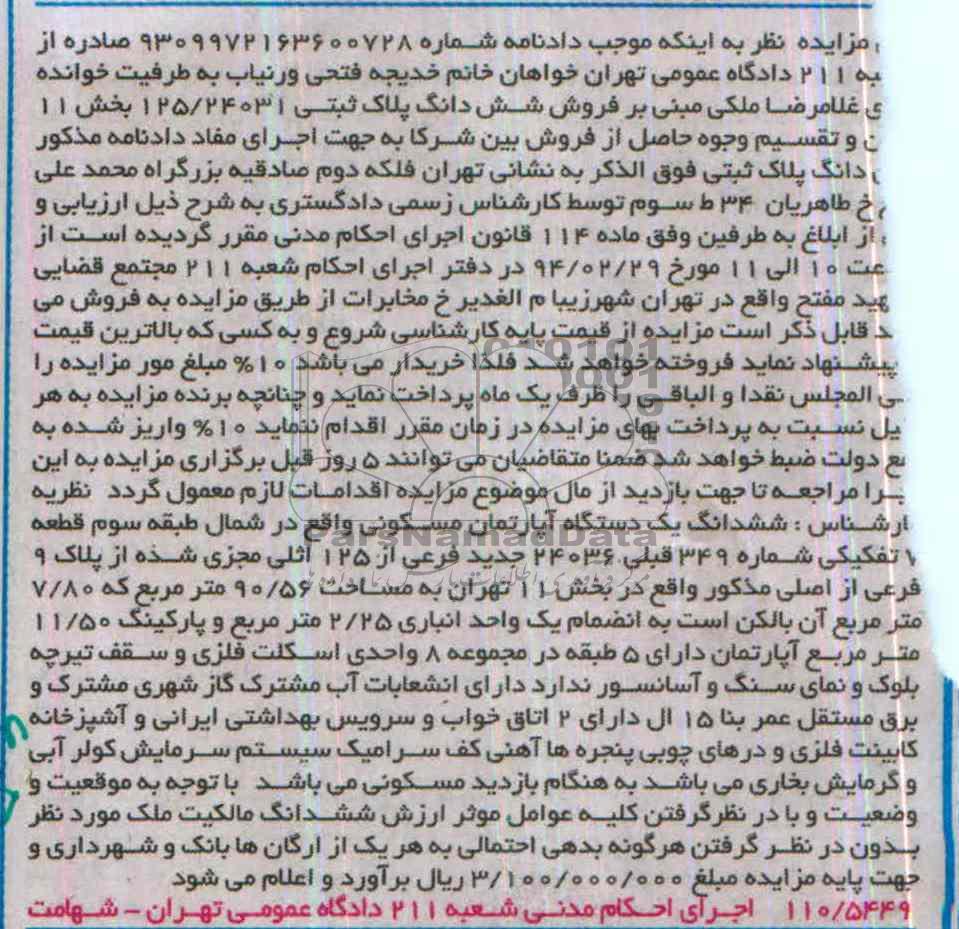 مزایده نظر به اینکه موجب دادنامه شماره ۹۳۰۹۹۷۲۱۶۳۶۰۰۷۲۸ صادره از
۲۱۱ دادگاه عمومی تهران خواهان خانم خدیجه فتحی ورنیاب به طرفیت خوانده
غلامرضا ملکی مبنی بر فروش شش دانگ پلاک ثبتی ۱۲۵/۲۴۰۳۱ بخش ۱۱
و تقسیم وجوه حاصل از فروش بین شرکا به جهت اجرای مفاد دادنامه مذکور
دانگ پلاک ثبتی فوق الذکر به نشانی تهران فلکه دوم صادقیه بزرگراه محمد علی
خ طاهریان ۳۴ ط سوم توسط کارشناس رسمی دادگستری به شرح ذیل ارزیابی و
از ابلاغ به طرفین وفق ماده ۱۱۴ قانون اجرای احکام مدنی مقرر گردیده است از
۱۰ الی ۱۱ مورخ ۹۴/۰۲/۲۹ در دفتر اجرای احکام شعبه ۲۱۱ مجتمع قضایی
مفتح واقع در تهران شهرزیبا م الغدیر خ مخابرات از طریق مزایده به فروش می
قابل ذکر است مزایده از قیمت پایه کارشناسی شروع و به کسی که بالاترین قیمت
پیشنهاد نماید فروخته خواهد شد فلذا خریدار می باشد ۱۰% مبلغ مور مزایده را
المجلس نقدا و الباقی را ظرف یک ماه پرداخت نماید و چنانچه برنده مزایده به هر
نسبت به پرداخت بهای مزایده در زمان مقرر اقدام ننماید ۱۰% واریز شده به
دولت ضبط خواهد شد ضمنا متقاضیان می توانند ۵ روز قبل برگزاری مزایده به این
مراجعه تا جهت بازدید از مال موضوع مزایده اقدامات لازم معمول گردد نظریه
ارشناس : ششدانگ یک دستگاه آپارتمان مسکونی واقع در شمال طبقه سوم قطعه
۷ تفکیکی شماره ۳۴۹ قبلی ۲۴۰۳۶ جدید فرعی از ۱۲۵ اثلی مجزی شده از پلاک ۹
فرعی از اصلی مذکور واقع در بخش ۱۱ تهران به مساحت ۹۰/۵۶ متر مربع که ۷/۸۰
متر مربع آن بالکن است به انضمام یک واحد انباری ۲/۲۵ متر مربع و پارکینگ ۱۱/۵۰
متر مربع آپارتمان دارای ۵ طبقه در مجموعه ۸ واحدی اسکلت فلزی و سقف تیرچه
بلوک و نمای سنگ و آسانسور ندارد دارای انشعابات آب مشترک گاز شهری مشترک و
برق مستقل عمر بنا ۱۵ ال دارای ۲ اتاق خواب و سرویس بهداشتی ایرانی و آشپزخانه
کابینت فلزی و درهای چوبی پنجره ها آهنی کف سرامیک سیستم سرمایش کولر آبی
و گرمایش بخاری می باشد به هنگام بازدید مسکونی می باشد با توجه به موقعیت و
وضعیت و با در نظرگرفتن کلیه عوامل موثر ارزش ششدانگ مالکیت ملک مورد نظر
بدون در نظر گرفتن هرگونه بدهی احتمالی به هر یک از ارگان ها بانک و شهرداری و
جهت پایه مزایده مبلغ ۳/۱۰۰/۰۰۰/۰۰۰ ریال برآورد و اعلام می شود
۱۱۰/۵۴۴۹ اجرای احکام مدنی شعبه ۲۱۱ دادگاه عمومی تهران - شهامت
ParsNamadData